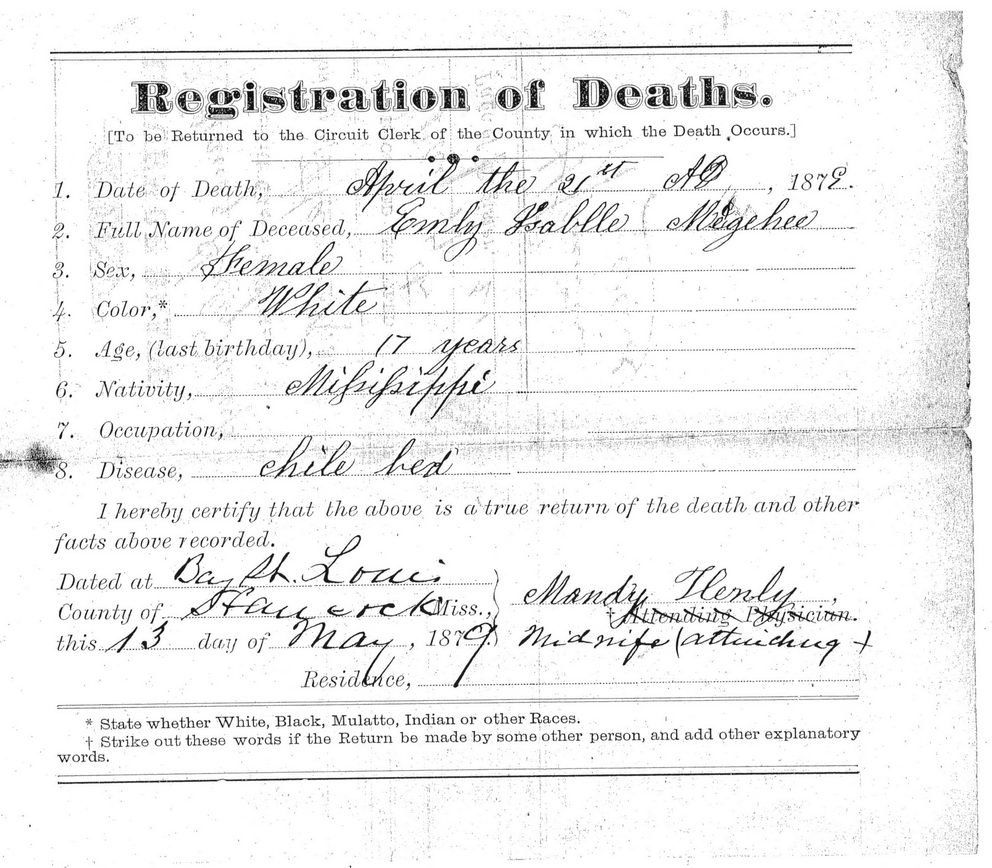 Registration of Deaths.
[To be Returned to the Circuit Clerk of the County in which the Death Occurs.]
1. Date of Death, April the 21st AD, 1879.
2. Full Name of Deceased, Emly Isablle Megehee
3. Sex, Female
4. Color,* White
5. Age, (last birthday), 17 years
6. Nativity, Mississippi
7. Occupation,
8. Disease, chile bed
I hereby certify that the above is a true return of the death and other
facts above recorded.
Dated at Bay St. Louis
County of Hancock Miss., Mandy Henly,
† Attending Physician.
this 13 day of May, 1879. Midwife (attending +
Residence,
* State whether White, Black, Mulatto, Indian or other Races.
† Strike out these words if the Return be made by some other person, and add other explanatory
words.